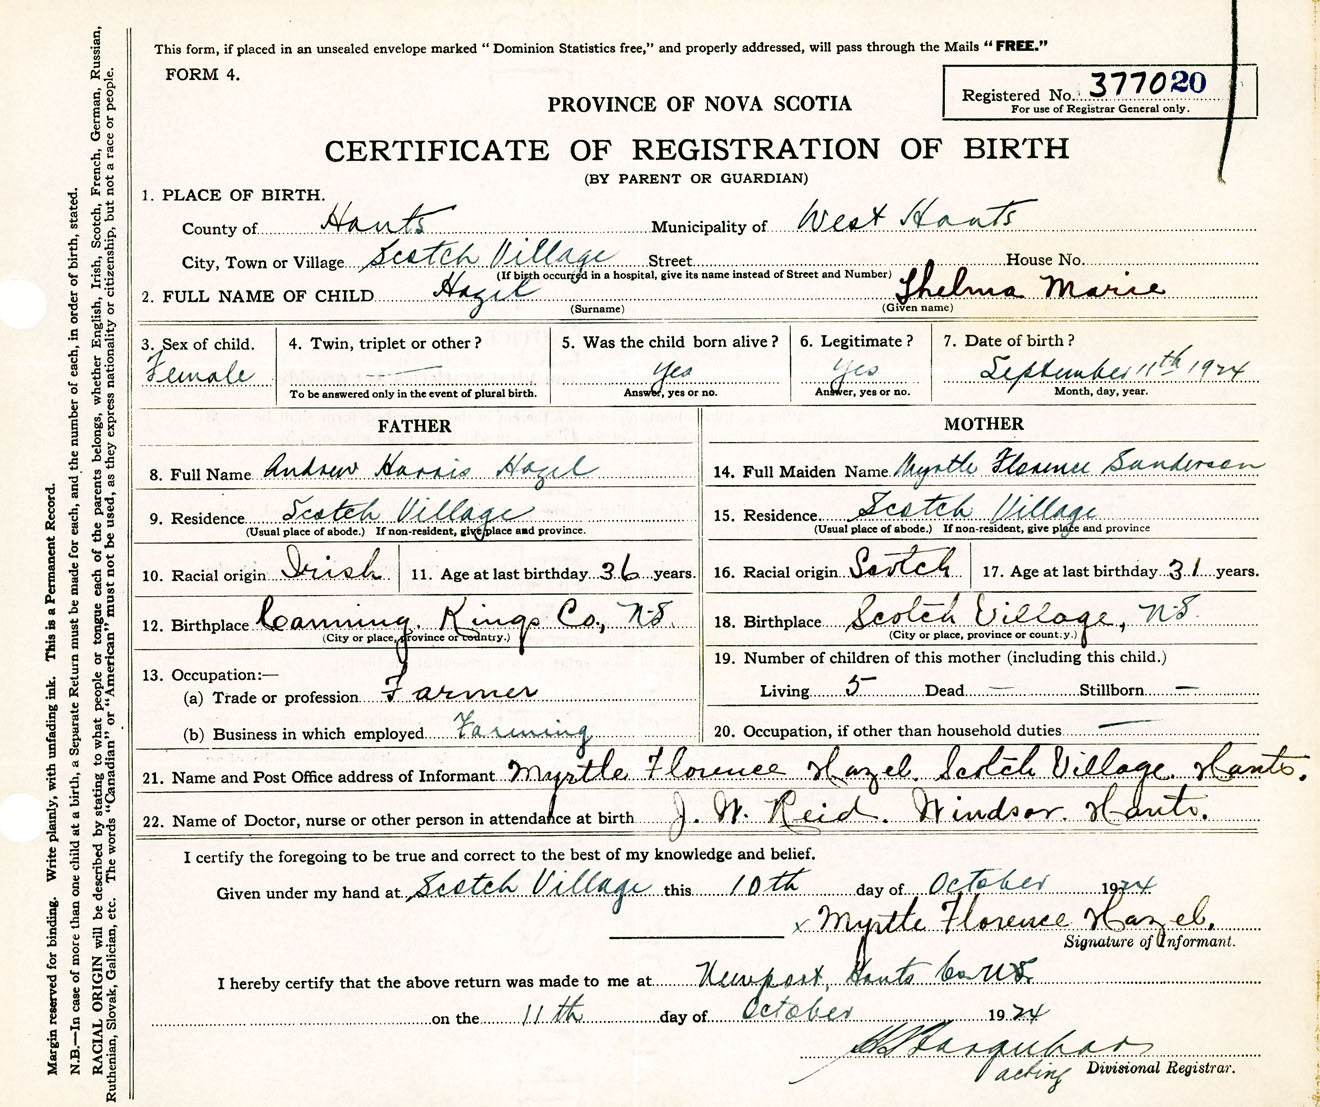 This form, if placed in an unsealed envelope marked "Dominion Statistics free," and properly addressed, will pass through the Mails "FREE."
FORM 4.
Registered No. 377020
For use of Registrar General only.
PROVINCE OF NOVA SCOTIA
CERTIFICATE OF REGISTRATION OF BIRTH
(BY PARENT OR GUARDIAN)
1. PLACE OF BIRTH.
County of Hants Municipality of West Hants
City, Town or Village Scotch Village Street House No.
(If birth occurred in a hospital, give its name instead of Street and Number)
2. FULL NAME OF CHILD Hazel Thelma Marie
(Surname) (Given name)
3. Sex of child. 4. Twin, triplet or other? 5. Was the child born alive? 6. Legitimate? 7. Date of birth?
Female — Yes Yes September 11th 1924
To be answered only in the event of plural birth. Answer, yes or no. Answer, yes or no. Month, day, year.
FATHER
8. Full Name Andrew Harris Hazel
9. Residence Scotch Village
(Usual place of abode.) If non-resident, give place and province.
10. Racial origin Irish 11. Age at last birthday 36 years.
12. Birthplace Canning, Kings Co., N.S.
(City or place, province or country.)
13. Occupation:—
(a) Trade or profession Farmer
(b) Business in which employed Farming
MOTHER
14. Full Maiden Name Myrtle Florence Sanderson
15. Residence Scotch Village
(Usual place of abode.) If non-resident, give place and province
16. Racial origin Scotch 17. Age at last birthday 31 years.
18. Birthplace Scotch Village, N.S.
(City or place, province or country.)
19. Number of children of this mother (including this child.)
Living 5 Dead — Stillborn —
20. Occupation, if other than household duties —
21. Name and Post Office address of Informant Myrtle Florence Hazel. Scotch Village. Hants.
22. Name of Doctor, nurse or other person in attendance at birth J. W. Reid. Windsor. Hants.
I certify the foregoing to be true and correct to the best of my knowledge and belief.
Given under my hand at Scotch Village this 10th day of October 1924
x Myrtle Florence Hazel.
Signature of Informant.
I hereby certify that the above return was made to me at Newport, Hants Co N.S.
on the 11th day of October 1924
Farquhar
acting Divisional Registrar.
Margin reserved for binding. Write plainly, with unfading ink. This is a Permanent Record.
N.B.—In case of more than one child at a birth, a Separate Return must be made for each, and the number of each, in order of birth, stated.
RACIAL ORIGIN will be described by stating to what people or tongue each of the parents belongs, whether English, Irish, Scotch, French, German, Russian,
Ruthenian, Slovak, Galician, etc. The words "Canadian" or "American" must not be used, as they express nationality or citizenship, but not a race or people.